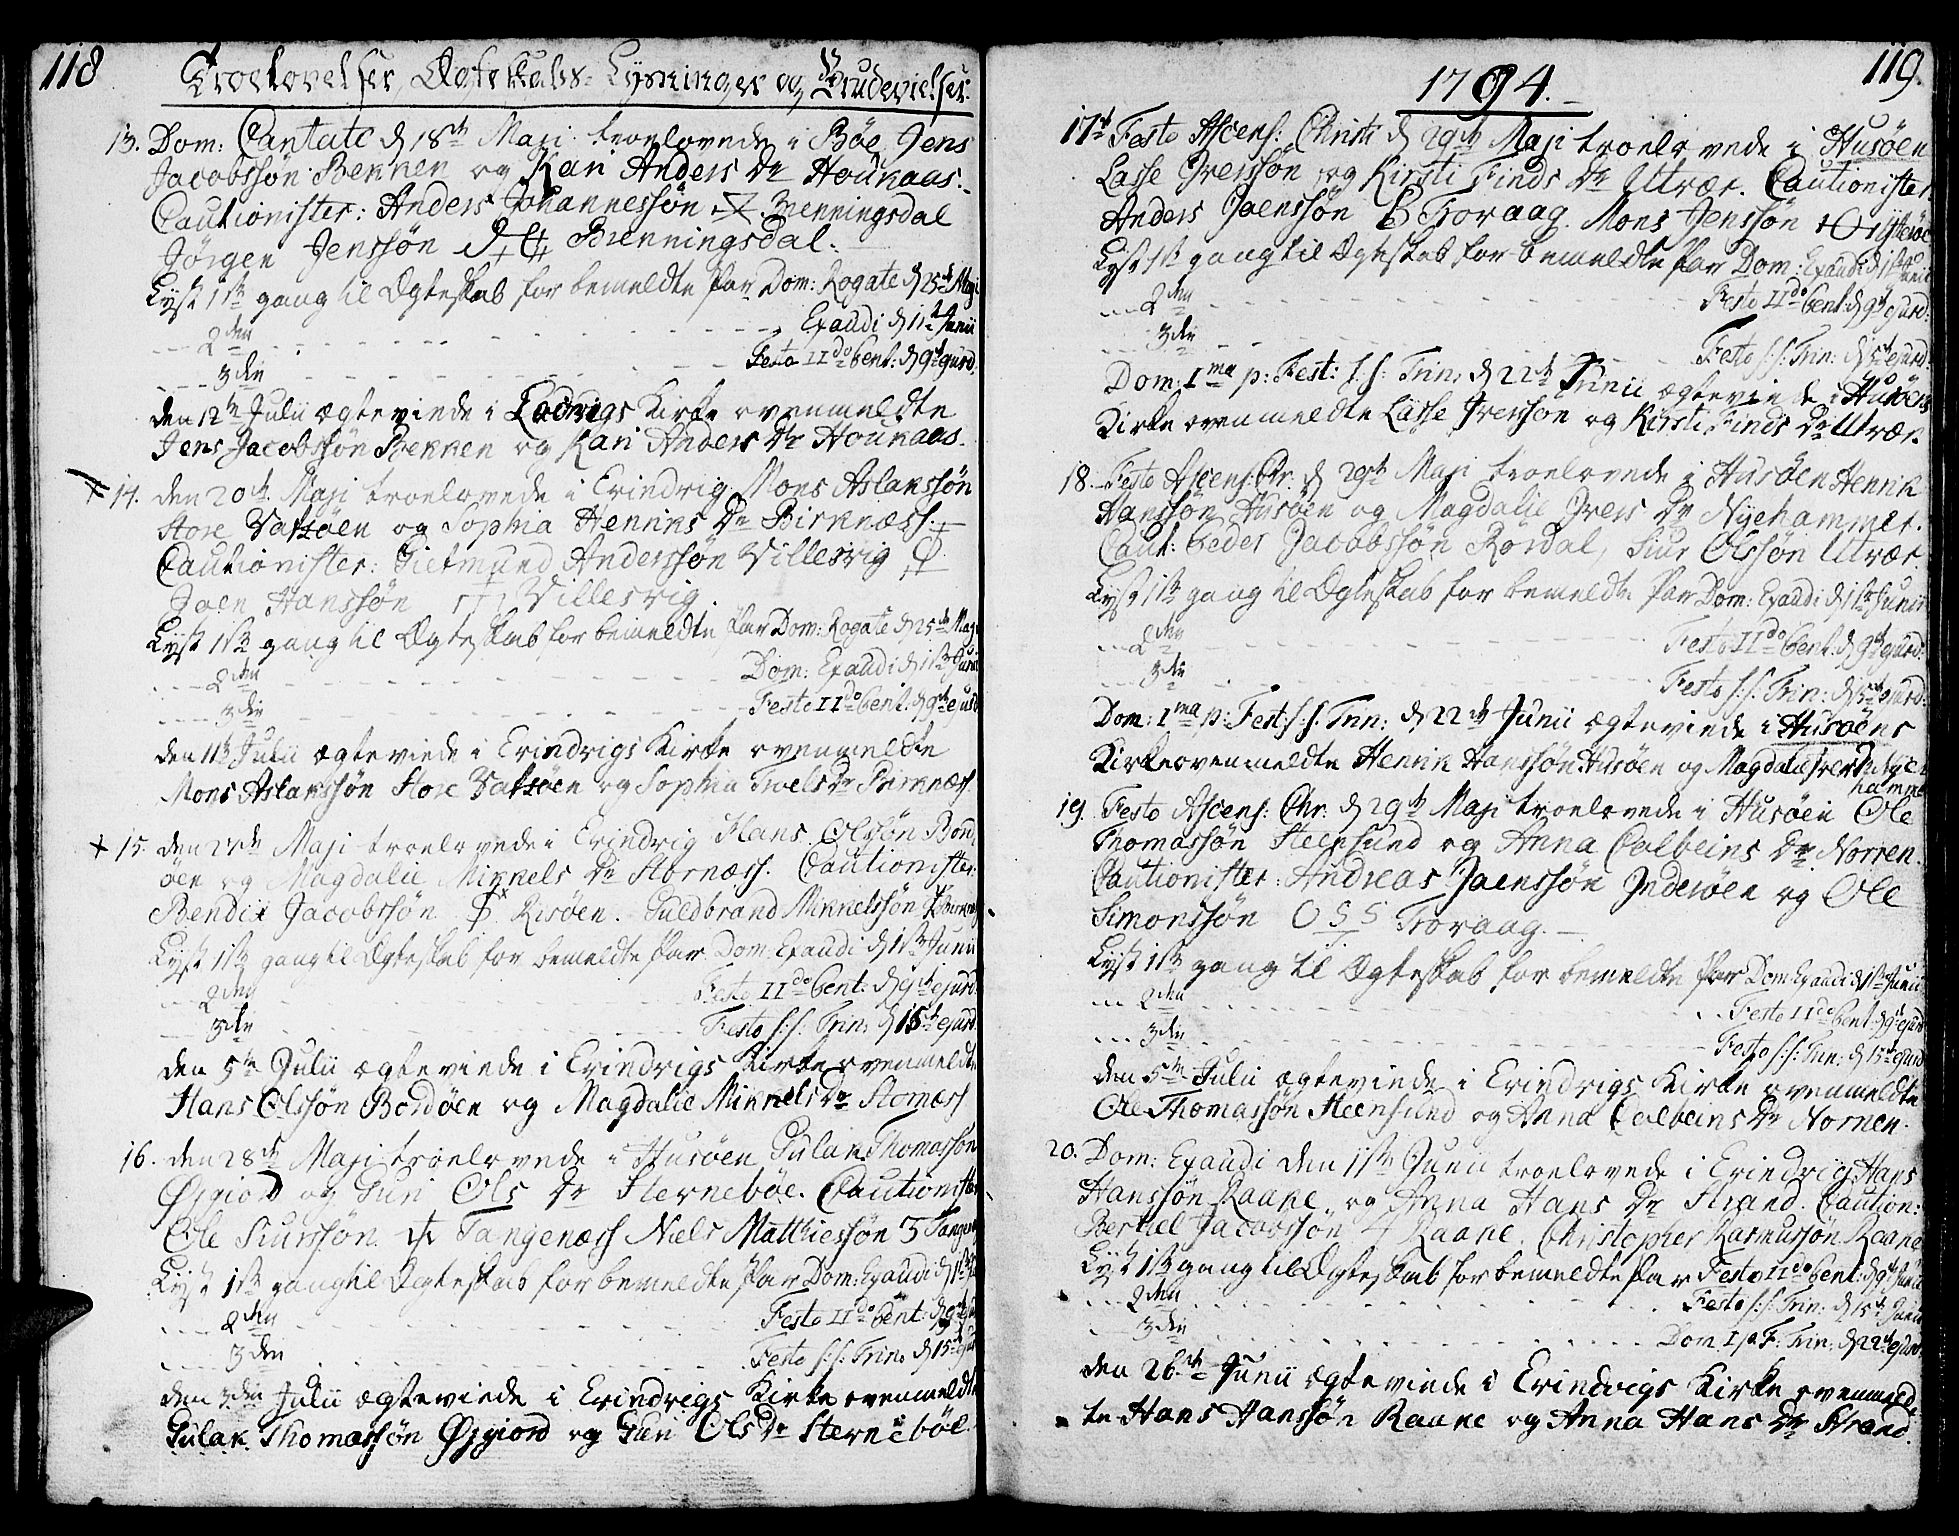 118
Troelovelser, Ægteskabs-Lysninger og Brudevielser.
13. Dom: Cantate d 18de Maji troelovede i Böe Jens
Jacobssön Bekken og Kari Anders Dr Houkaas.
Cautionister: Anders Johannessön Brenningsdal
Jörgen Jenssön Brenningsdal.
Lyst 1ste gang til Ægteskab for bemeldte Par Dom: Rogate d 25de Maji
2den Exaudi d 1ste Junii
3die Festo IIdo Pent: d 9de ejusd.
den 12te Julii ægteviede i Kirke ovenmeldte
Jens Jacobssön Bekken og Kari Anders Dr Houkaas.
14. den 20de Maji troelovede i Evindvig Mons Aslakssön
Store Vatsöen og Sophia Henriks Dr Birknæss.
Cautionister: Gietmund Anderssön Villesvig
Joen Hanssön Villesvig
Lyst 1ste gang til Ægteskab for bemeldte Par Dom: Rogate d 25de Maji
2den Dom: Exaudi d 1ste Junii
3die Festo IIdo Pent: d 9de ejusd
den 11te Julii ægteviede i Evindvigs Kirke ovenmeldte
Mons Aslakssön Store Vatsöen og Sophia Dr Birknæss
15. den 27de Maji troelovede i Evindvig Hans Olssön Bord
öen og Magdalie Mikkels Dr Stornæss. Cautionister:
Bendix Jacobssön Risöen. Guldbrand Mikkelssön Birknæss
Lyst 1ste gang til Ægteskab for bemeldte Par Dom: Exaudi d 1ste Junii
2den Festo IIdo Pent: d 9de ejusd.
3die Festo s:s: Trin: d 15de ejusd.
den 5te Julii ægteviede i Evindvigs Kirke ovenmeldte
Hans Olssön Bordöen og Magdalie Mikkels Dr Stornæss
16. den 28de Maji troelovede i Husöen Gulak Thomassön
Öygiord og Guri Ols Dr Sterneböe. Cautionister
Ole Siurssön Tangenæss Niels Matthiessön Tangenæss
Lyst 1ste gang til Ægteskab for bemeldte Par Dom: Exaudi d 1ste
2den Festo IIdo Pent: d 9de
3die Festo s:s: Trin: d 15de
den 3die Julii ægteviede i Evindvigs Kirke ovenmeldte
Gulak Thomassön Öygiord og Guri Ols Dr Sterneböe.
1794.
119.
17. Festo Ascens: Christi d 29de Maji troelovede i Husöen
Lasse Iverssön og Kirsti Finds Dr Utvær. Cautionister
Anders Joenssön Foraag. Mons Jenssön Ytteröe
Lyst 1ste gang til Ægteskab for bemeldte Par Dom: Exaudi d 1ste Junii
2den Festo IIdo Pent: d 9de ejusd:
3die Festo s:s: Trin: d 15de ejusd.
Dom: Ima p: Fest: s:s: Trin: d 22de Junii ægteviede i Husöens
Kirke ovenmeldte Lasse Iverssön og Kirsti Finds Dr Utvær
18. Festo Ascens: Chr: d 29de Maji troelovede i Husöen Henrik
Hanssön Husöen og Magdalie Ivers Dr Nyehammer.
Caut: Peder Jacobssön Rördal, Siur Olssön Utvær.
Lyst 1ste gang til Ægteskab for bemeldte Par Dom: Exaudi d 1ste Junii
2den Festo IIdo Pent: d 9de ejusd:
3die Festo s:s: Trin: d 15de ejusd:
Dom: Ima p: Fest: s:s: Trin: d 22de Junii ægteviede i Husöens
Kirke ovenmeldte Henrik Hanssön Husöen og Magdalie Ivers Dr Nye
hammer
19. Festo Ascens: Chr: d 29de Maji troelovede i Husöen Ole
Thomassön Steensund og Anna Colbeins Dr Norren.
Cautionister: Andreas Joenssön Inderöen og Ole
Simonssön O S S Foraag.
Lyst 1ste gang til Ægteskab for bemeldte Par Dom: Exaudi d 1ste Junii
2den Festo IIdo Pent: d 9de ejusd
3die Festo s:s: Trin: d 15de ejusd
den 5te Julii ægteviede i Evindvigs Kirke ovenmeldte
Ole Thomassön Steensund og Anna Colbeins Dr Norren.
20. Dom: Exaudi den 1ste Junii troelovede i Evindvig Hans
Hanssön Raake og Anna Hans Dr Strand. Caution:
Bertel Jacobssön Raake. Christopher Rasmussön Raake
Lyst 1ste gang til Ægteskab for bemeldte Par Festo IIdo Pent: d 9de Junii
2den Festo s:s: Trin: d 15de Junii
3die Dom I p. F: Trin: d 22de ejusd.
den 26de Junii ægteviede i Evindvigs Kirke ovenmeld-
te Hans Hanssön Raake og Anna Hans Dr Strand.